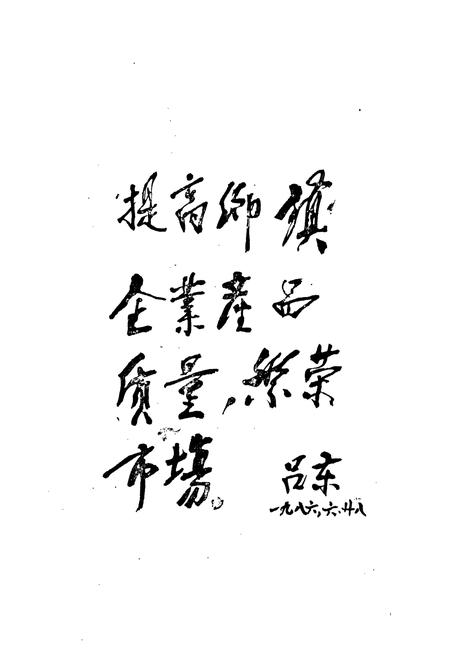 提高鄉鎮
企業產品
质量，繁荣
市場。
吕东
一九八六，六，廿八